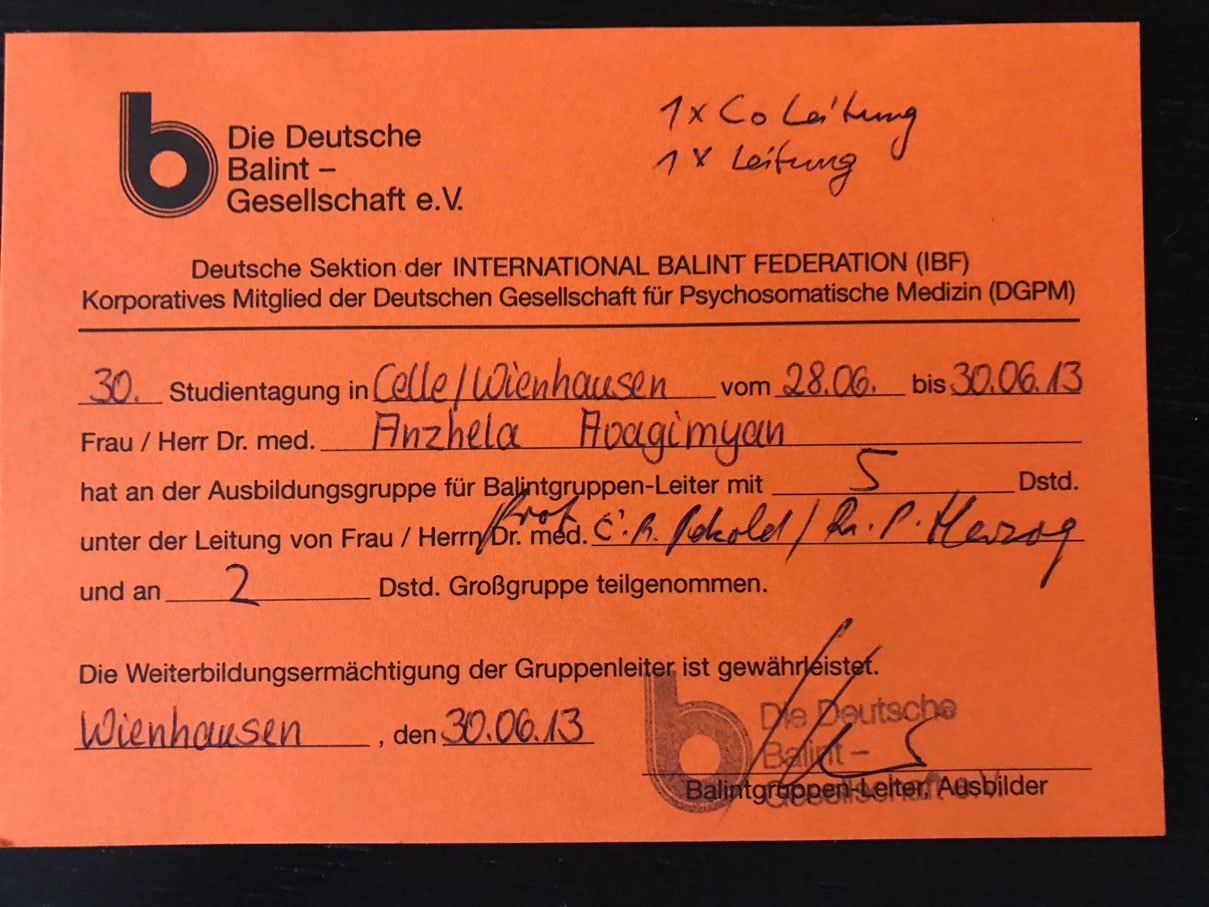 b
Die Deutsche
Balint –
Gesellschaft e.V.
1 x Co Leitung
1 x Leitung
Deutsche Sektion der INTERNATIONAL BALINT FEDERATION (IBF)
Korporatives Mitglied der Deutschen Gesellschaft für Psychosomatische Medizin (DGPM)
30. Studientagung in Celle/Wienhausen vom 28.06. bis 30.06.13
Frau / Herr Dr. med. Anzhela Avagimyan
hat an der Ausbildungsgruppe für Balintgruppen-Leiter mit 5 Dstd.
unter der Leitung von Frau / Herrn Prof. Dr. med. / Dr. P. Herzog
und an 2 Dstd. Großgruppe teilgenommen.
Die Weiterbildungsermächtigung der Gruppenleiter ist gewährleistet.
Wienhausen, den 30.06.13
b
Die Deutsche
Balint –
Gesellschaft e.V.
Balintgruppen-Leiter, Ausbilder